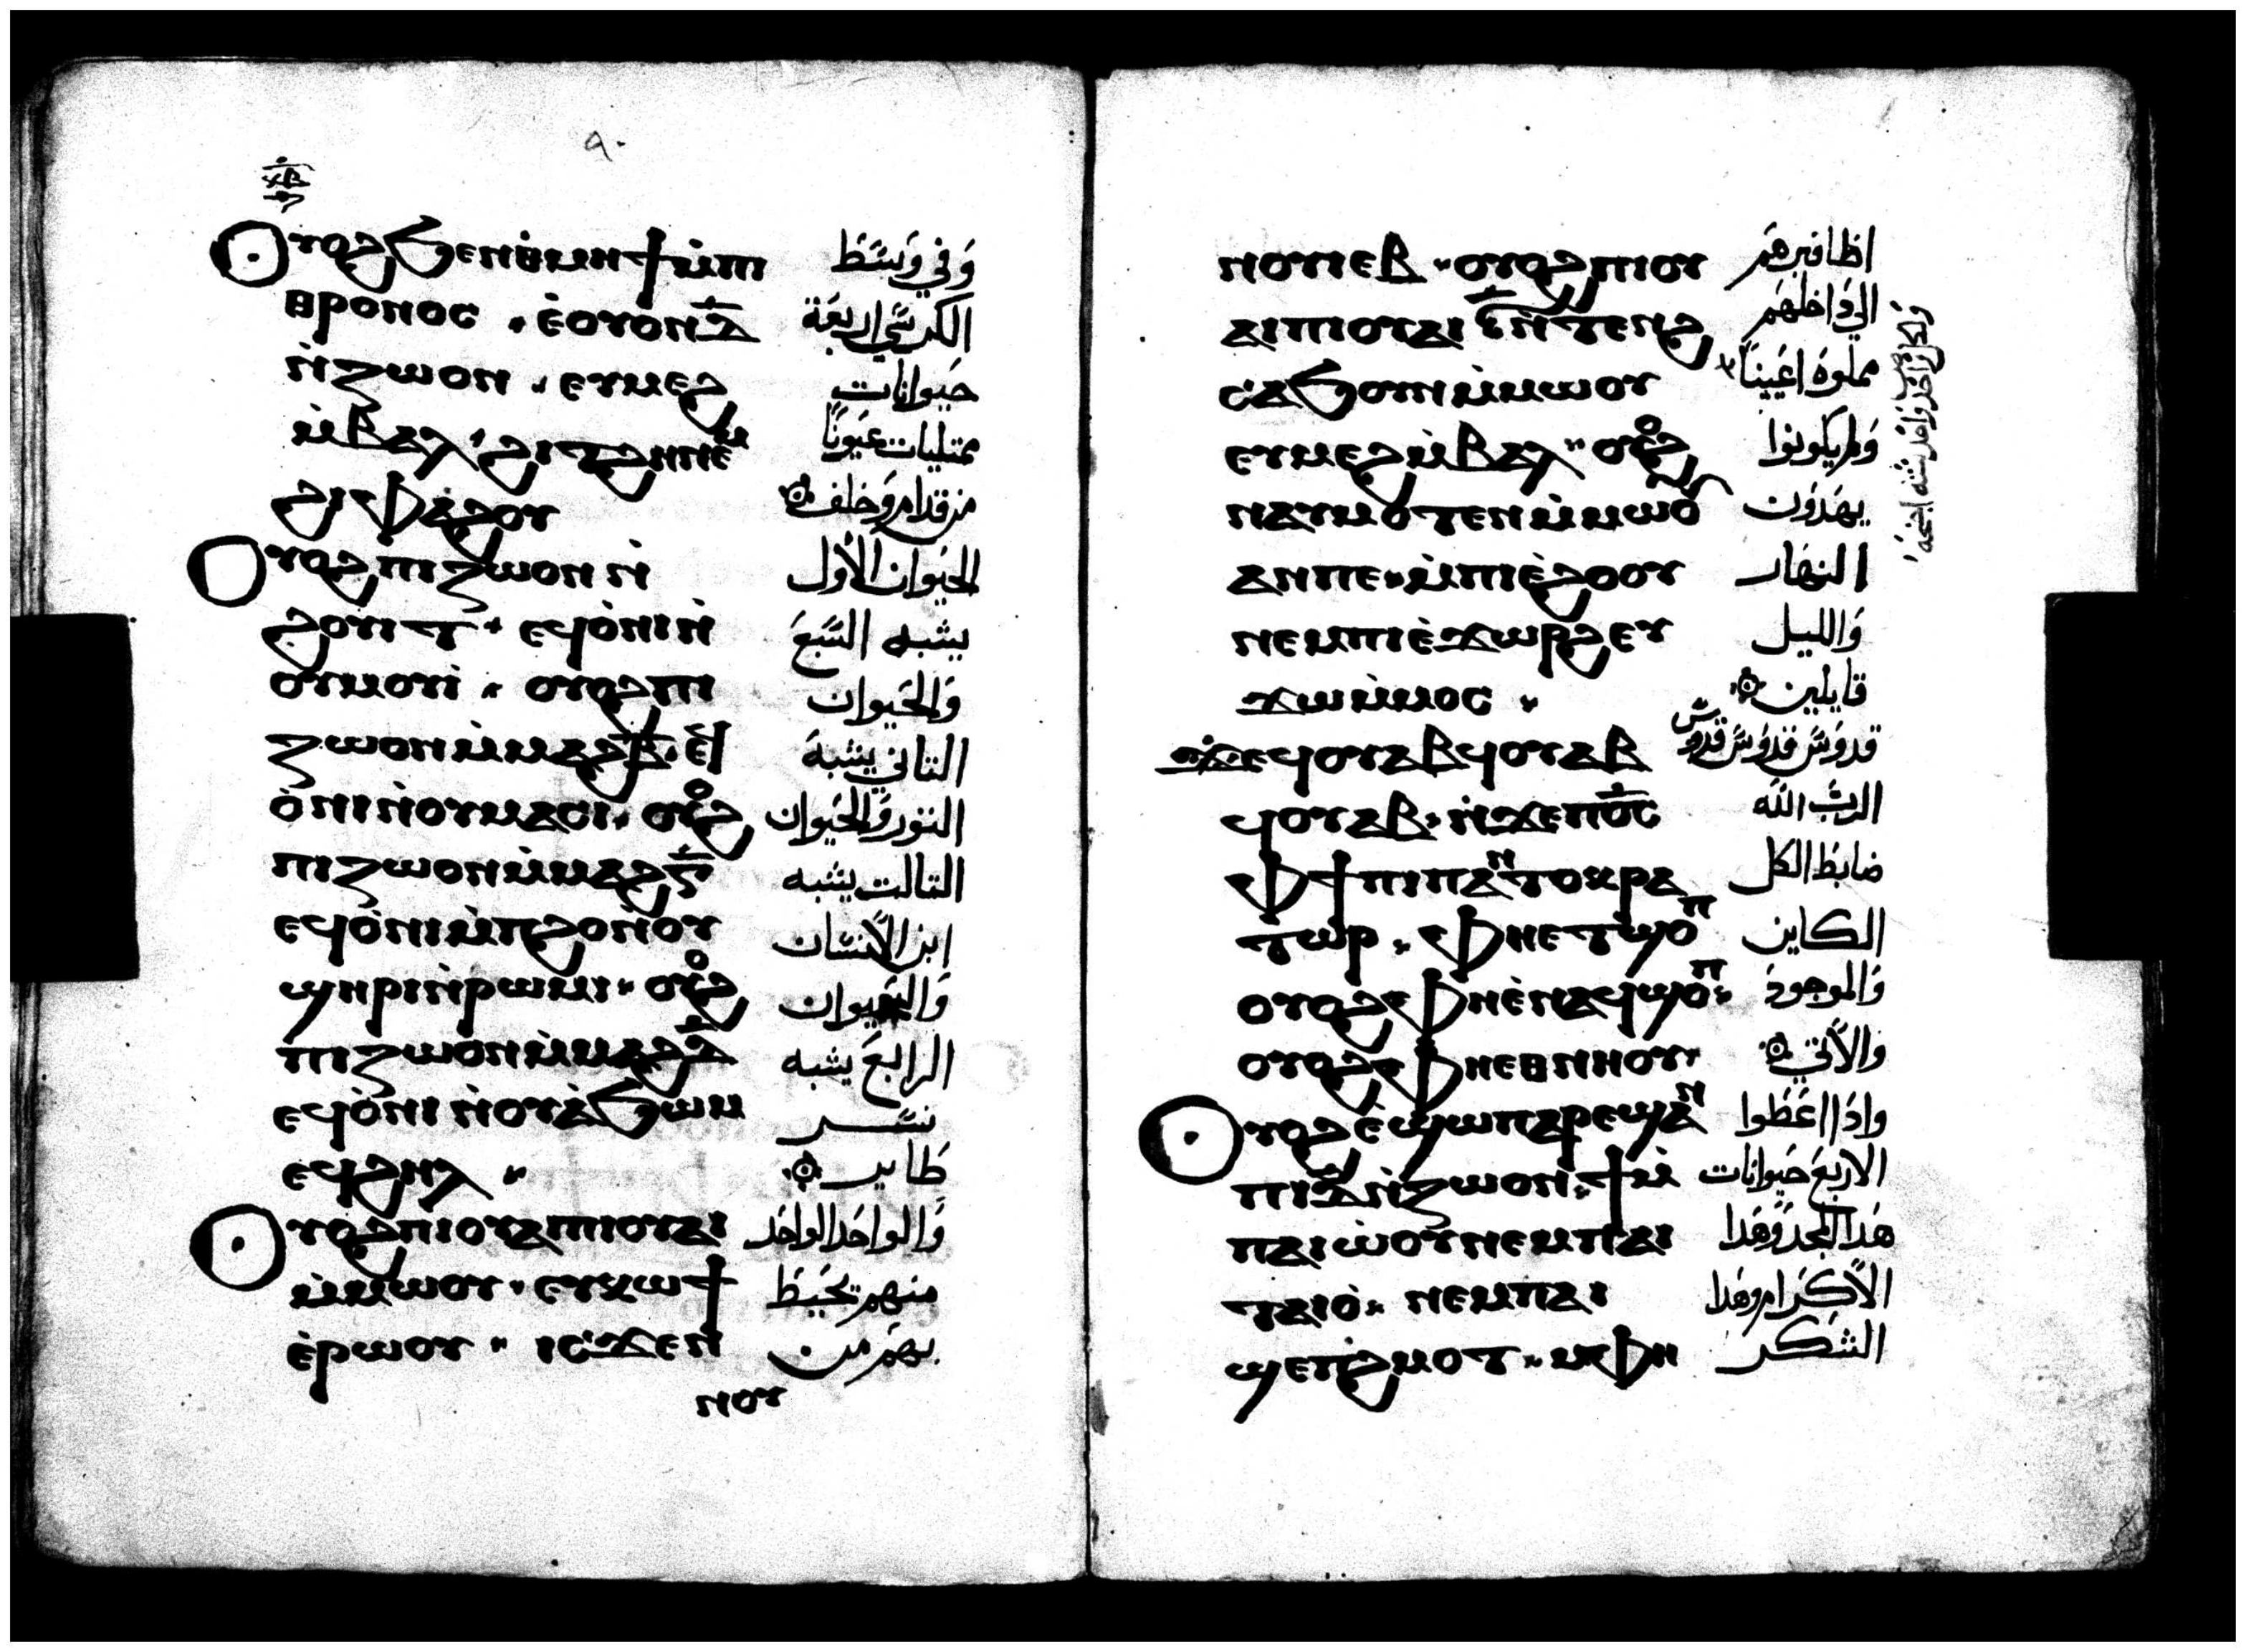 ٩٠
Ⲟⲩⲟϩ ϧⲉⲛⲑ̀ⲙⲏϯ ⲙ̀ⲡⲓ وَفي وَسَط
ⲑⲣⲟⲛⲟⲥ . ⲉ̀ⲟⲩⲟⲛ ⲇ̅ الكرسي اربعة
ⲛ̀ⲍⲱⲟⲛ . ⲉⲩⲙⲉϩ حيوانات
ⲙ̀ⲃⲁⲗ . ϩⲓⲧϩⲏ ⲙ̀ⲙⲟ ممتليات عيونًا
ϩⲓⲫⲁϩⲟⲩ من قدام وخلف
Ⲟⲩⲟϩ ⲡⲓⲍⲱⲟⲛ ⲛ̀ الحيوان الأول
ϩⲟⲩⲓⲧ . ⲉϥⲟ̀ⲛⲓ ⲛ̀ يشبه السبع
ⲟⲩⲙⲟⲩⲓ̀ . ⲟⲩⲟϩ ⲡⲓ وَالحيوان
ⲍⲱⲟⲛ ⲙ̀ⲙⲁϩⲃ̅ . ⲉϥ التاني يشبه
ⲟ̀ⲛⲓ ⲛ̀ⲟⲩⲙⲁⲥⲓ . ⲟⲩⲟϩ التور وَالحيوان
ⲡⲓⲍⲱⲟⲛ ⲙ̀ⲙⲁϩⲅ̅ التالت يشبه
ⲉϥⲟ̀ⲛⲓ ⲙ̀ⲡϩⲟ ⲛ̀ⲟⲩ ابن الانسان
ϣⲏⲣⲓ ⲛ̀ⲣⲱⲙⲓ . ⲟⲩⲟϩ وَالحيوان
ⲡⲓⲍⲱⲟⲛ ⲙ̀ⲙⲁϩⲇ̅ الرابع يشبه
ⲉϥⲟ̀ⲛⲓ ⲛ̀ⲟⲩⲁ̀ϧⲱⲙ نسر
ⲉϥϩⲏⲗ . طاير
Ⲟⲩⲟϩ ⲡⲓⲟⲩⲁⲓ ⲡⲓⲟⲩⲁⲓ وَالواحد الواحد
ⲙ̀ⲙⲱⲟⲩ . ⲉⲩⲕⲱϯ منهم تحيط
ⲉ̀ⲣⲱⲟⲩ . ⲓⲥϫⲉⲛ بهم من
ⲛⲟⲩ
ⲛⲟⲩⲓⲉⲃ . ⲟⲩⲟϩ ⲡⲓⲟⲩ اظافيرهم
ⲁⲓ ⲡⲓⲟⲩⲁⲓ ⲋ̅ ⲛ̀ⲧⲉⲛϩ الي داخلهم
ⲥⲁϧⲟⲩⲛ ⲙ̀ⲙⲱⲟⲩ مملوة اعينًا
ⲉⲩⲙⲉϩ ⲙ̀ⲃⲁⲗ . ⲟⲩⲟϩ وَلم يكونوا
ⲛⲁⲩⲙⲟⲧⲉⲛ ⲙ̀ⲙⲱⲟⲩ يهدون
ⲁⲛⲡⲉ . ⲙ̀ⲡⲓⲉ̀ϩⲟⲟⲩ النهار
ⲛⲉⲙ ⲡⲓⲉ̀ϫⲱⲣϩ ⲉⲩ وَالليل
ϫⲱ ⲙ̀ⲙⲟⲥ . قايلين
ϫⲉ ϥⲟⲩⲁⲃ ϥⲟⲩⲁⲃ قدوس قدوس قدوس
ϥⲟⲩⲁⲃ . ⲛ̀ϫⲉⲡⲟ̅ⲥ̅ الرب الله
ⲫϯ ⲡⲓⲡⲁⲛⲧⲟⲕⲣⲁ ضابط الكل
ⲧⲱⲣ . ⲫⲏⲉⲧϣⲟⲡ الكاين
ⲟⲩⲟϩ ⲫⲏⲉ̀ⲛⲁϥϣⲟⲡ وَالموجود
ⲟⲩⲟϩ ⲫⲏⲉⲑⲛⲏⲟⲩ والاتي
Ⲟⲩⲟϩ ⲉ̀ϣⲱⲡ ⲁⲣⲉϣⲁⲛ واذا اعطوا
ⲡⲓⲇ̅ ⲛ̀ⲍⲱⲟⲛ . ϯ ⲙ̀ الاربع حيوانات
ⲡⲁⲓⲱ̀ⲟⲩ ⲛⲉⲙ ⲡⲁⲓ هذا المجد وهذا
ⲧⲁⲓⲟ̀ . ⲛⲉⲙ ⲡⲁⲓ الاكرام وهذا
ϣⲉⲡϩ̀ⲙⲟⲧ . ⲙ̀ⲫⲏ الشكر
ولكل واحد واحد ستة اجنحة